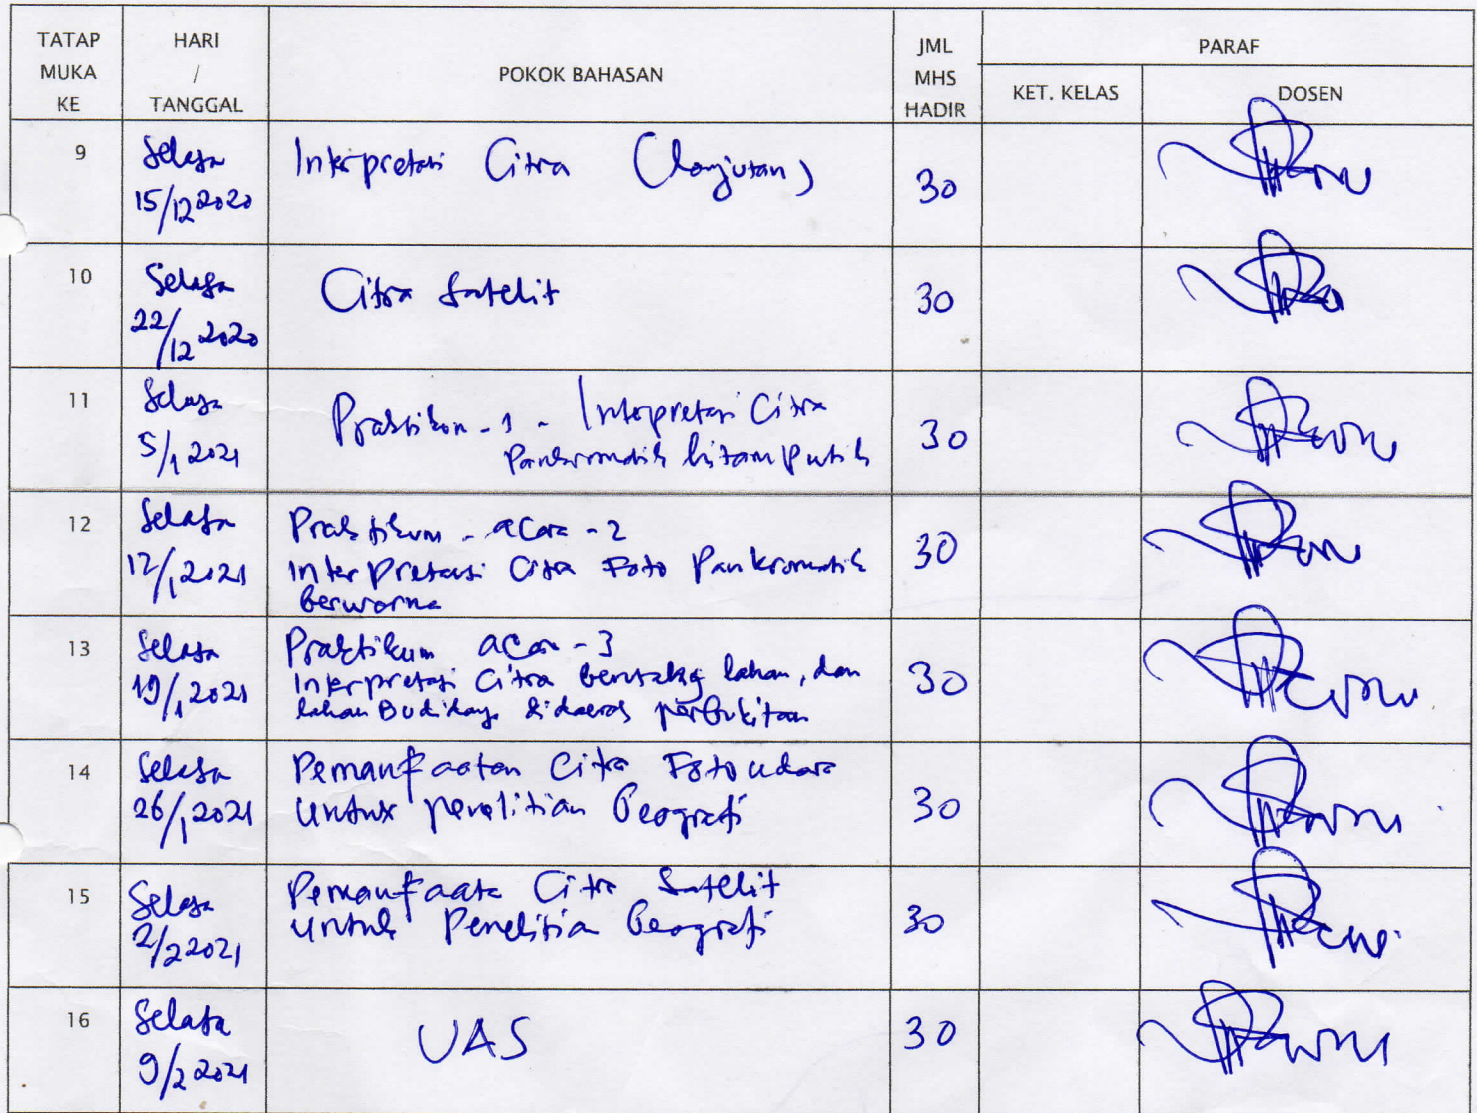 TATAP MUKA KE
HARI / TANGGAL
POKOK BAHASAN
JML MHS HADIR
PARAF
KET. KELAS
DOSEN
9
Selasa
15/12 2020
Interpretasi Citra (Lanjutan)
30
10
Selasa
22/12 2020
Citra Satelit
30
11
Selasa
5/1 2021
Praktikum - 1 - Intepretasi Citra
Pankromatik hitam putih
30
12
Selasa
12/1 2021
Praktikum - acara - 2
Interpretasi Citra Foto Pankromatik
berwarna
30
13
Selasa
19/1 2021
Praktikum acara - 3
Interpretasi Citra lahan, dan
lahan Budidaya didaerah perbukitan
30
14
Selasa
26/1 2021
Pemanfaatan Citra Foto udara
untuk penelitian Geografi
30
15
Selasa
2/2 2021
Pemanfaata Citra Satelit
untuk Penelitia Geografi
30
16
Selasa
9/2 2021
UAS
30